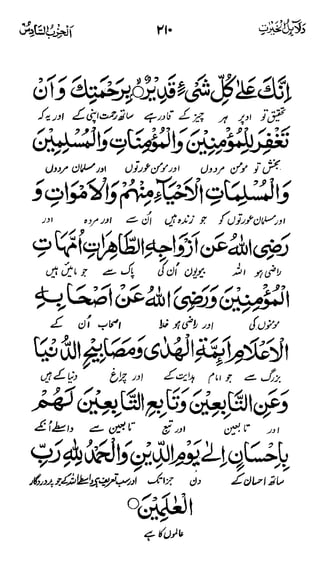 دلائل الخیرات ۲۱۰ الحزب السادس
اِنَّكَ عَلٰى كُلِّ شَىْءٍ قَدِيْرٌ بِرَحْمَتِكَ وَ اَنْ
تحقیق تو اوپر ہر چیز کے قادر ہے ساتھ رحمت اپنی کے اور یہ کہ
تَغْفِرَ لِلْمُؤْمِنِيْنَ وَالْمُؤْمِنَاتِ وَالْمُسْلِمِيْنَ
بخش تو مومن مردوں اور مومن عورتوں اور مسلمان مردوں
وَالْمُسْلِمَاتِ الْاَحْيَاءِ مِنْهُمْ وَالْاَمْوَاتِ وَ
اور مسلمان عورتوں کو جو زندہ ہیں اُن سے اور مردہ اور
رَضِىَ اللهُ عَنْ اَزْوَاجِهِ الطَّاهِرَاتِ اُمَّهَاتِ
راضی ہو اللہ بیویوں اُن کی پاک سے جو مائیں ہیں
الْمُؤْمِنِيْنَ وَرَضِىَ اللهُ عَنْ اَصْحَابِهِ
مومنوں کی اور راضی ہو خدا اصحاب اُن کے
الْاَعْلَامِ اَئِمَّةِ الْهُدٰى وَمَصَابِيْحِ الدُّنْيَا
بزرگ سے جو امام ہدایت کے اور چراغ دنیا کے ہیں
وَعَنِ التَّابِعِيْنَ وَتَابِعِ التَّابِعِيْنَ لَهُمْ
اور تابعین اور تبع تابعین سے واسطے اُنکے
بِاِحْسَانٍ اِلٰى يَوْمِ الدِّيْنِ وَالْحَمْدُ لِلّٰهِ رَبِّ
ساتھ احسان کے دن جزا تک اور سب تعریف واسطے اللہ کے جو پروردگار
الْعٰلَمِيْنَ
عالموں کا ہے